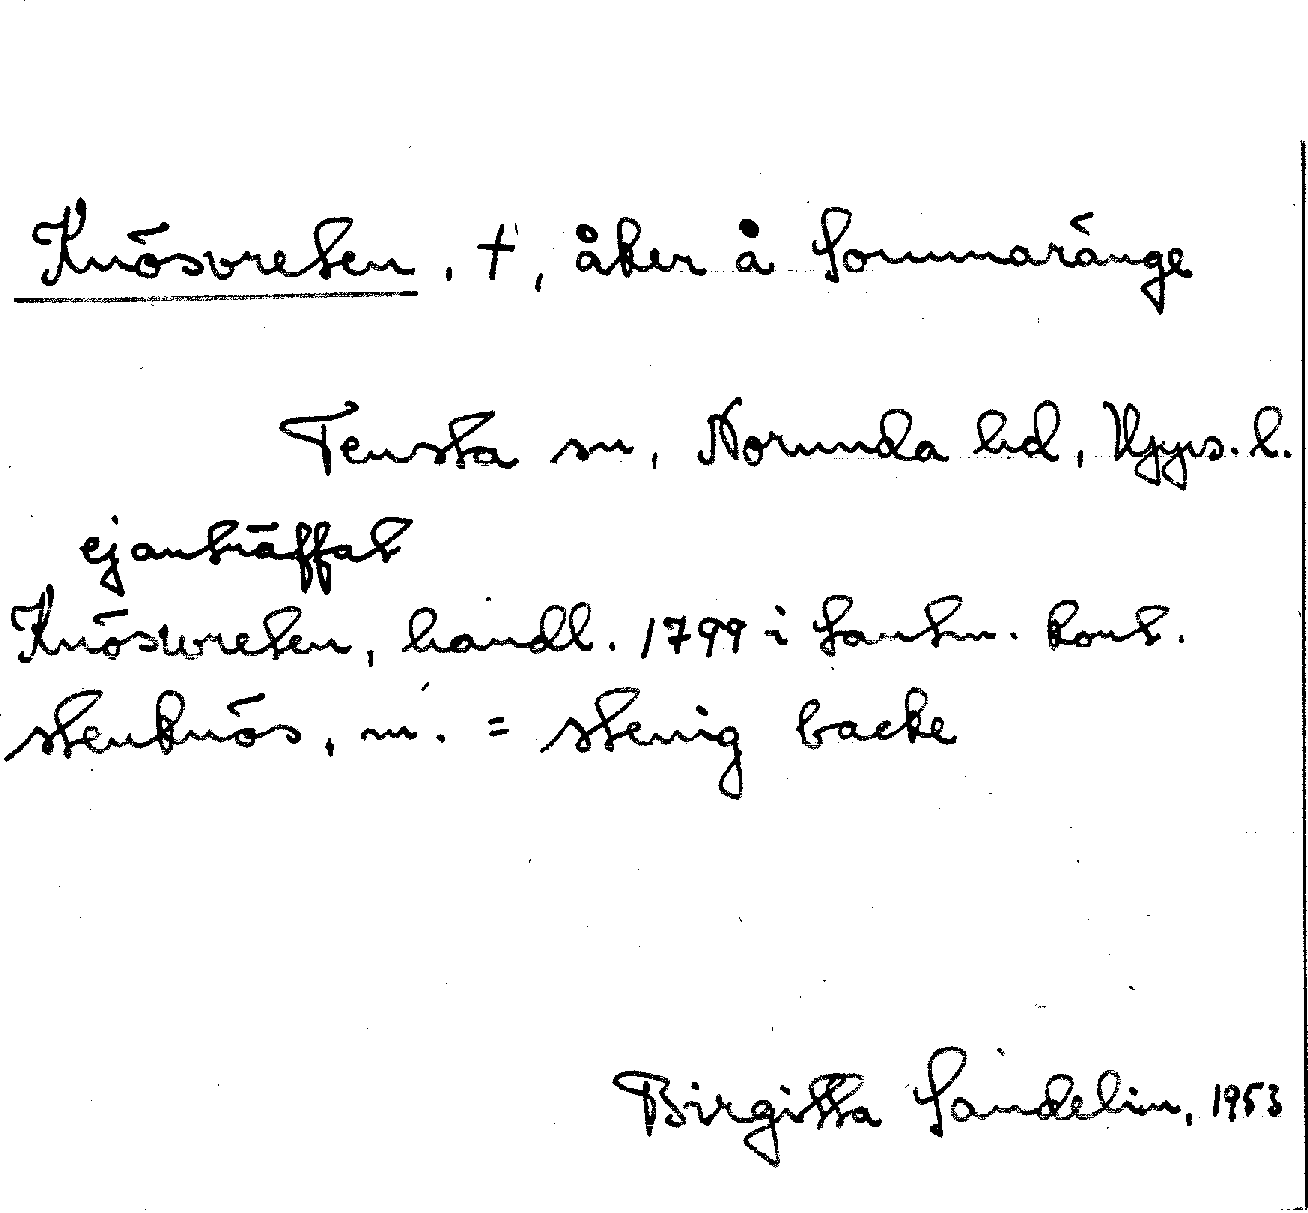 Knösvreten, †, åker å Sommaränge
Tensta sn, Norunda hd, Upps. l.
ej anträffat
Knöswreten, handl. 1799 i Lantm. kont.
stenknös, m. = stenig backe
Birgitta Sandelin, 1953